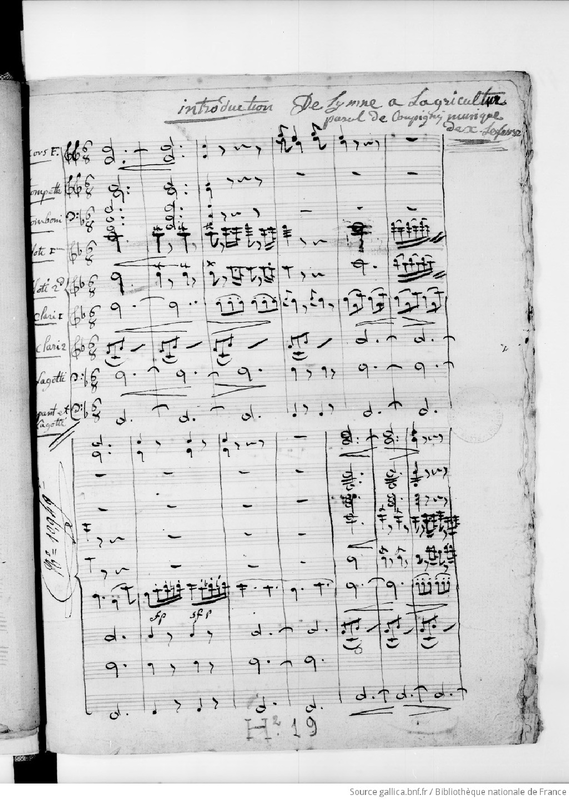 introduction De Lymne a Lagriculture
parol de Coupigny musique
de x Lefevre
Cors F.
trompette
tromboni
flote 1re
flote 2d
Clari 1
Clari 2
fagotti
serpent et
fagotti
No 12949
sfp sfp
H2 19
Source gallica.bnf.fr / Bibliothèque nationale de France